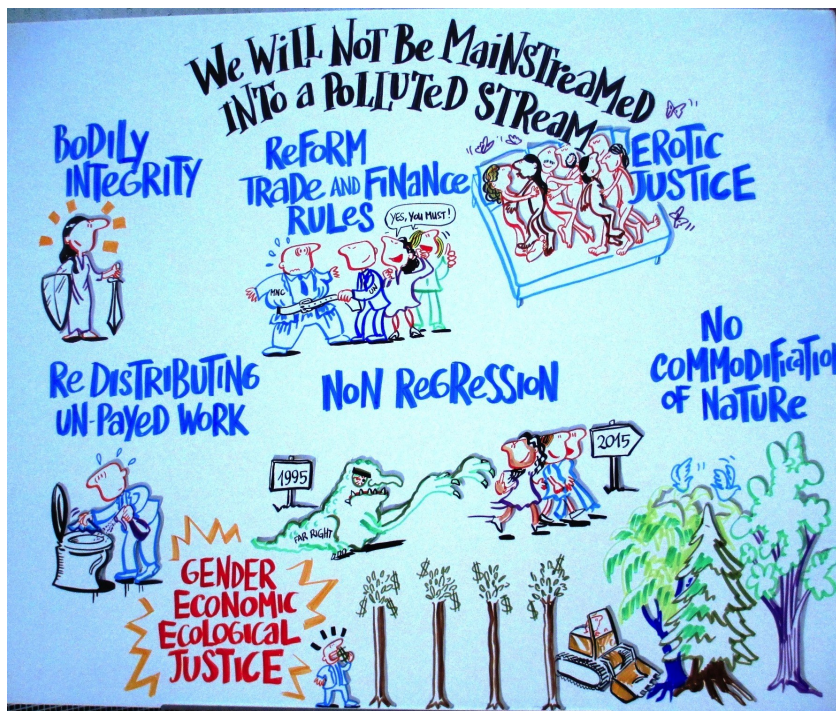 WE WILL NOT BE MAINSTREAMED
INTO A POLLUTED STREAM
BODILY
INTEGRITY
REFORM
TRADE AND FINANCE
RULES
EROTIC
JUSTICE
YES, YOU MUST!
MNC
UN
RE DISTRIBUTING
UN-PAYED WORK
NON REGRESSION
NO
COMMODIFICATION
OF NATURE
1995
2015
FAR RIGHT
GENDER
ECONOMIC
ECOLOGICAL
JUSTICE
$ $ $ $ $ $